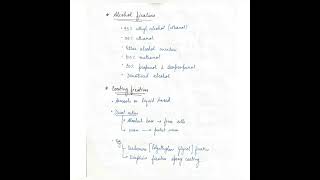 * Alcohol fixatives
• 95% ethyl alcohol (ethanol)
• ethanol
• Ether alcohol
• 100% methanol
• 80% propanol & isopropanol
• Denatured alcohol
* Coating fixatives
• Aerosols or liquid based
• Dual action
Alcohol base → fixes cells
wax → protect
• Eg
[Polyethylene glycol] fixative
• Diaphane fixative spray coating